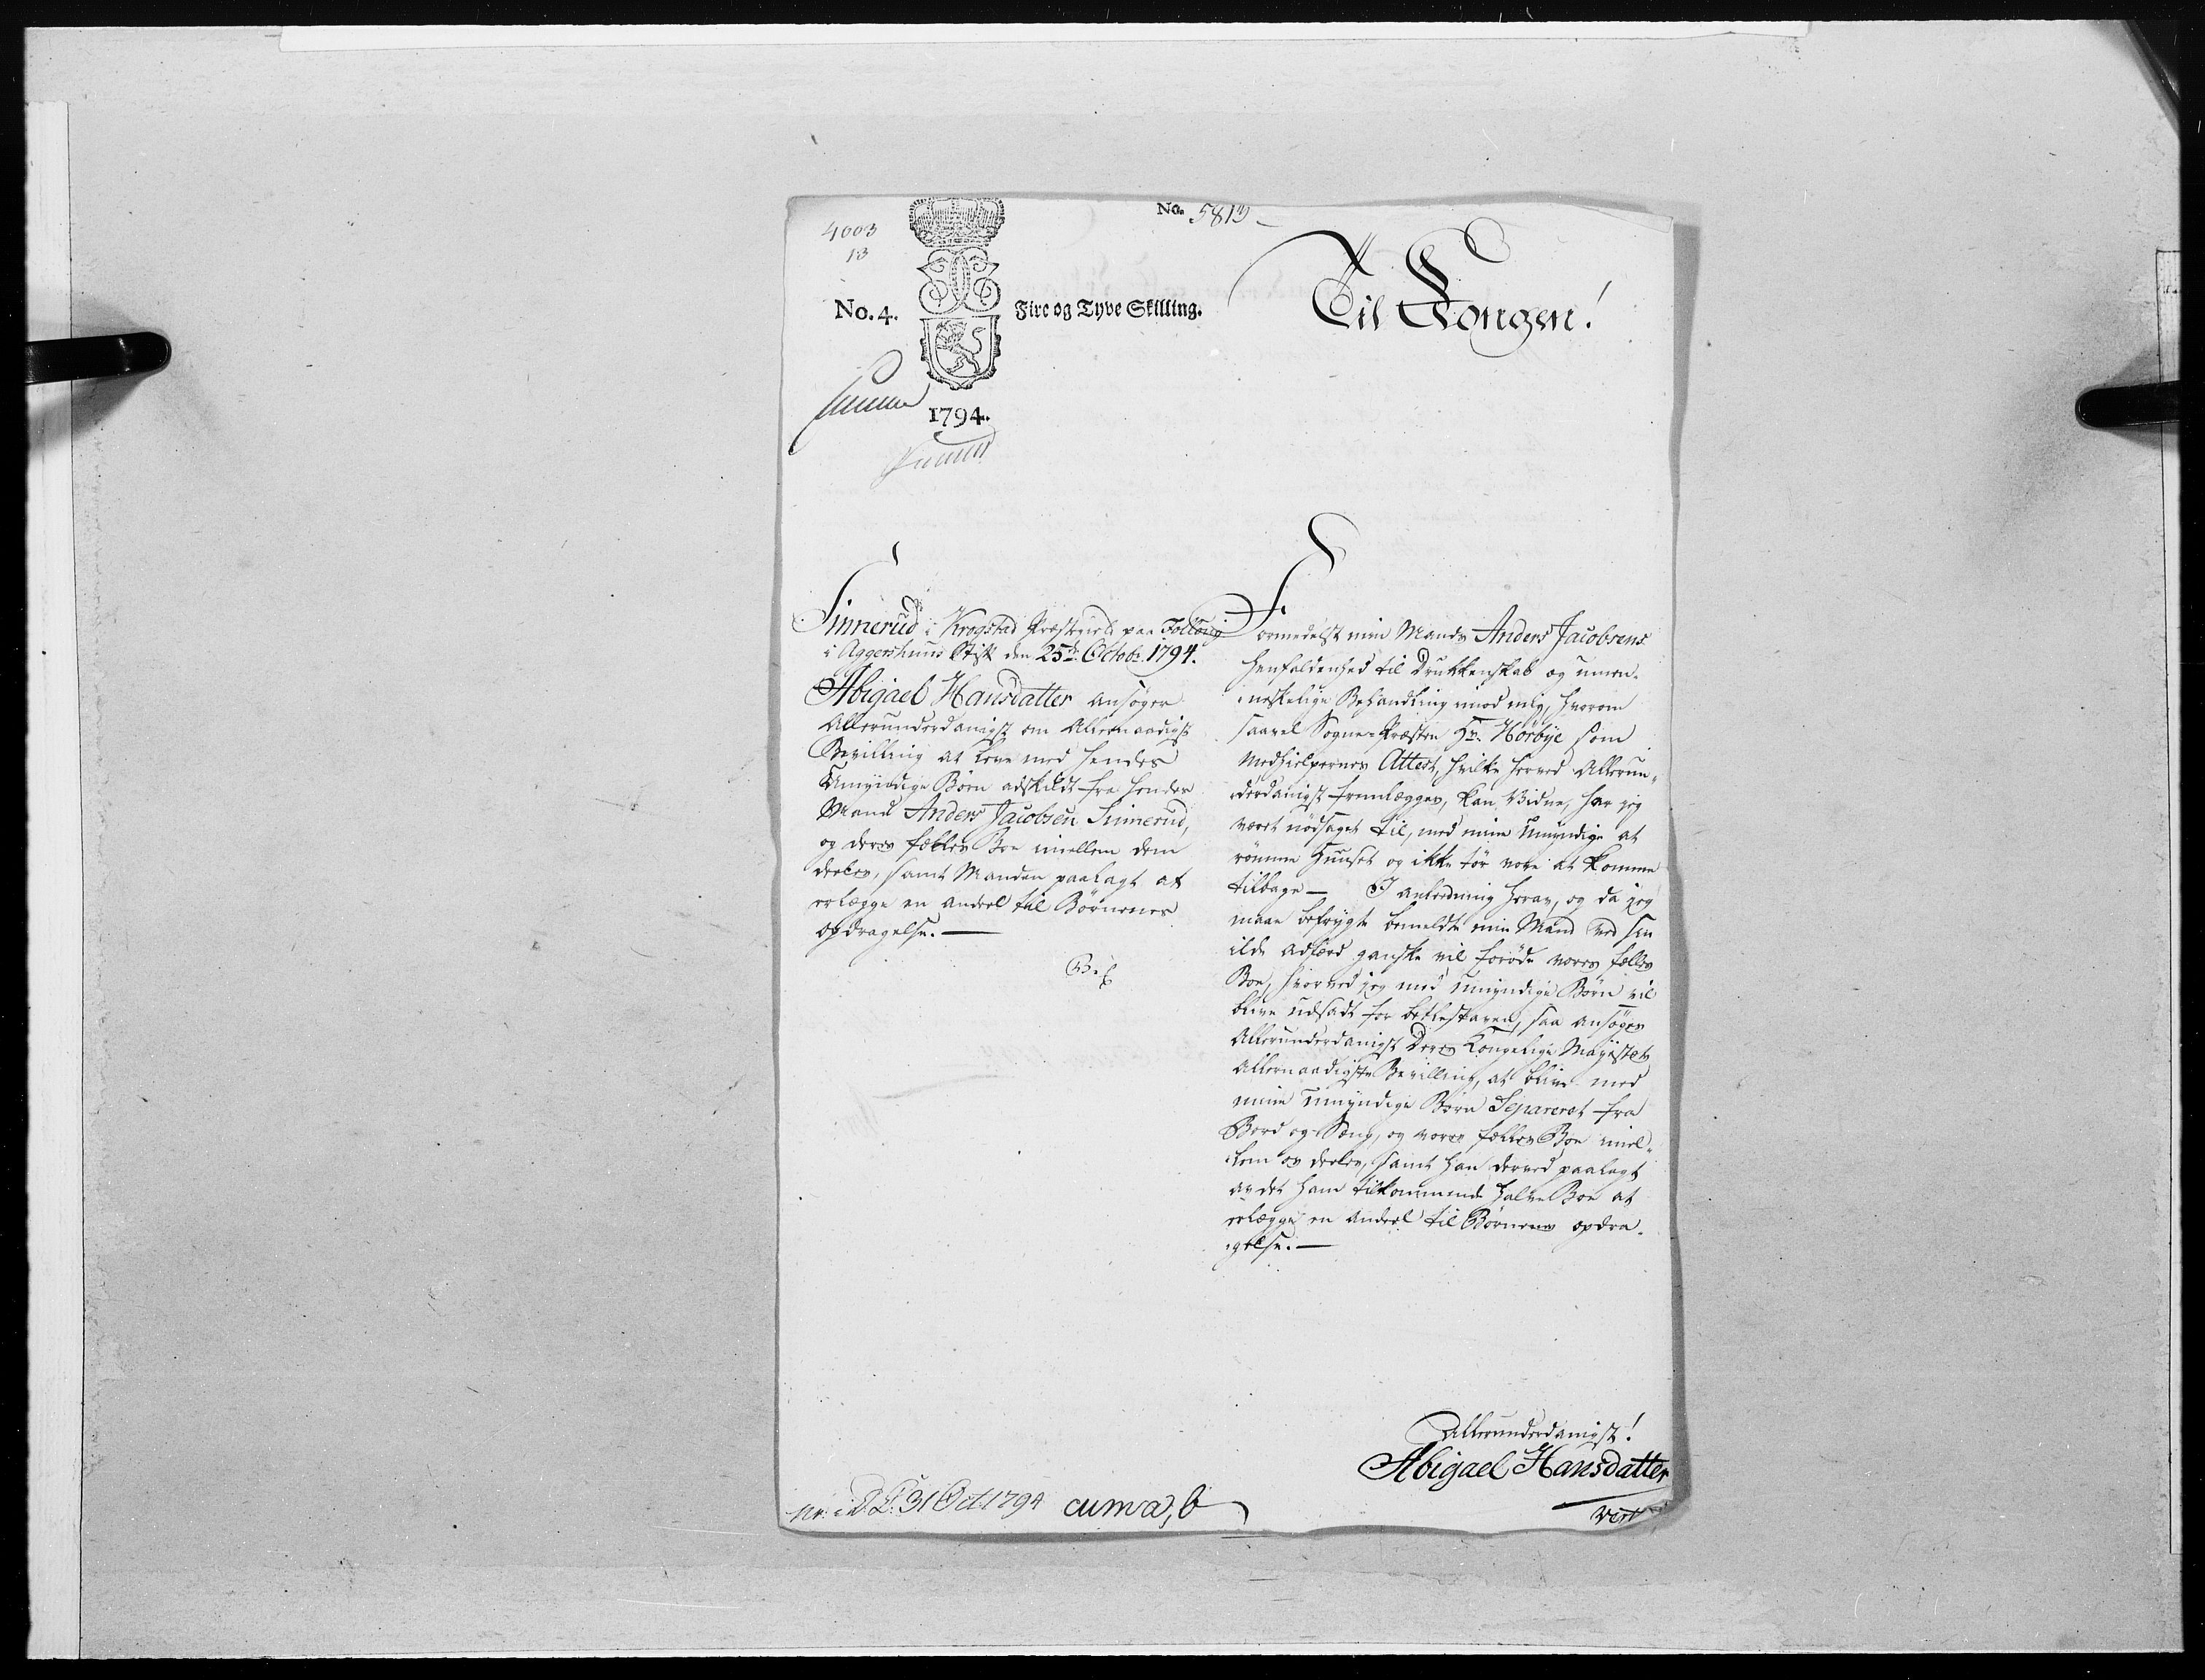 4003
13
No. 5813
No. 4.
Fire og Tyve Skilling.
1794.
Til Kongen!
Sinnerud i Krogstad Præstegield paa Follong
i Aggershuus Stift den 25de Octobr. 1794.
Abigael Hansdatter ansøger
Allerunderdanigst om Allernaadigst
Bevilling at leve med hendes
Umyndige Børn adskildt fra hendes
Mand Anders Jacobsen Sinnerud,
og deres fælles Boe imellem dem
deeles, samt Manden paalagt at
erlægge en andeel til Børnenes
opdragelse. —
Formedelst min Mands Anders Jacobsens
henfaldenhed til Drukkenskab og umen-
neskelige Behandling imod mig, hvorom
saavel Sogne-Præsten Hr. Hörbye som
Medhielpernes Attest, hvilke herved Allerun-
derdanigst fremlægges, kan Vidne, har jeg
været nødsaget til, med mine Umyndige at
rømme Huuset og ikke tør vove at komme
tilbage — I anledning herav, og da jeg
maae befrygte bemeldte min Mand ved sin
ilde adfærd ganske vil forøde vores fælles
Boe, hvorved jeg med umyndige Børn vil
blive udsadt for betlestaven, saa ansøges
Allerunderdanigst Deres Kongelige Mayestets
Allernaadigste Bevilling, at blive med
mine umyndige Børn Separeret fra
Bord og Seng, og vores fælles Boe imel-
lem os deeles, samt han derved paalagt
av det ham tilkommende halve Boe at
erlægge en andeel til Børnenes opdra-
gelse. —
Allerunderdanigst!
Abigael Hansdatter
31 Oct 1794 cum a, b
Vert